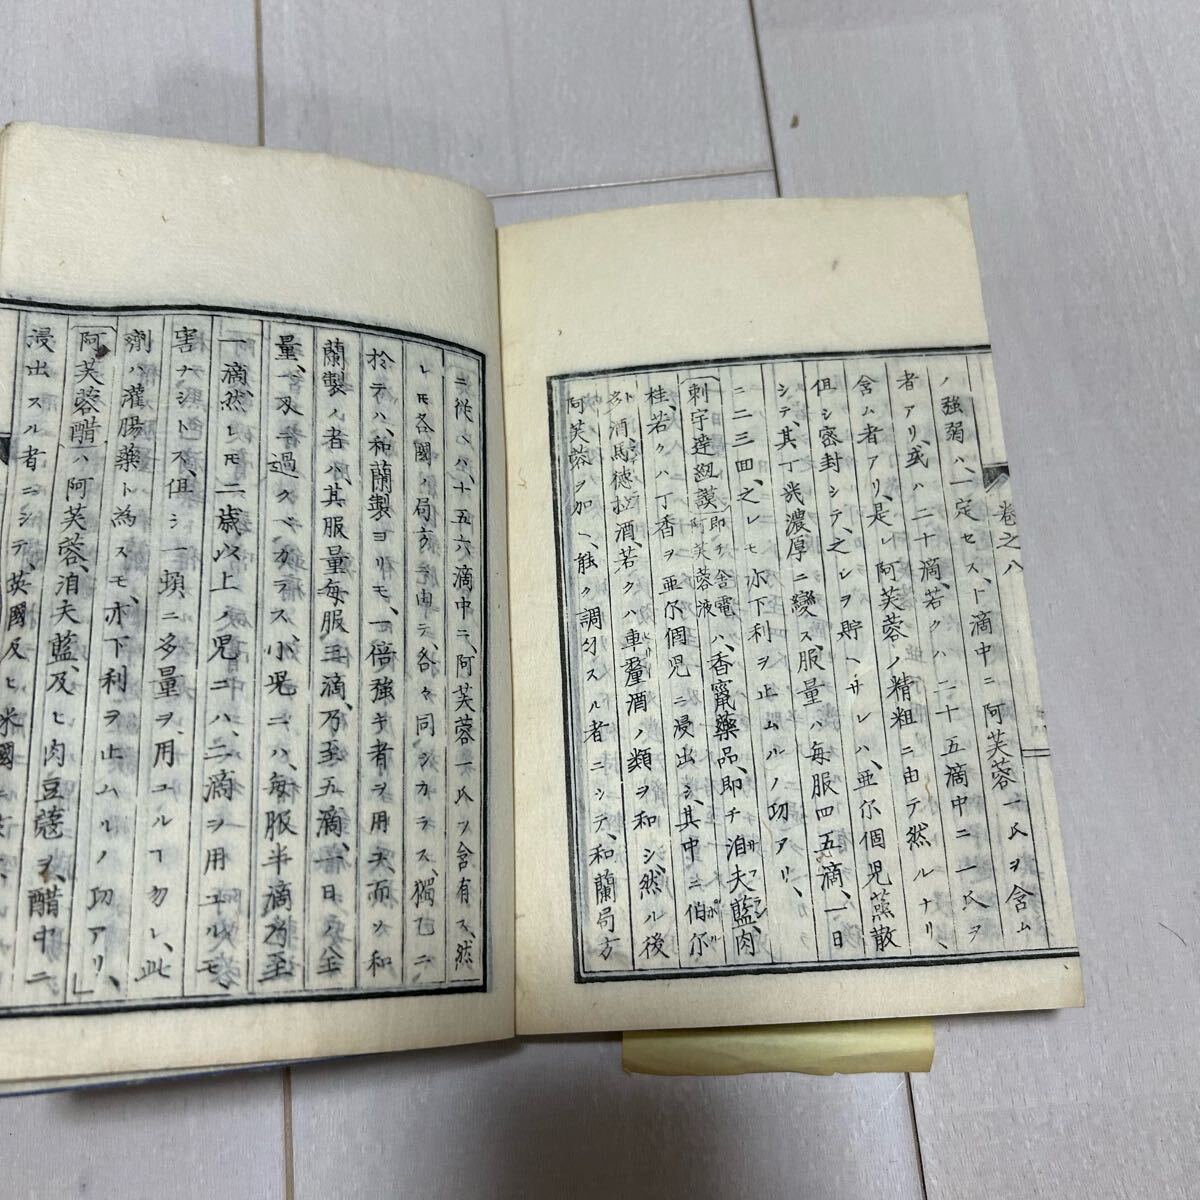 卷之八
ノ強弱ハ、一定セス、ト滴中ニ阿芙蓉一氏ヲ含ム
者アリ、或ハ二十滴、若クハ二十五滴中ニ一氏ヲ
含ム者アリ、是レ阿芙蓉ノ精粗ニ由テ然ルナリ、
但シ密封シテ、之レヲ貯ヘサレハ、亜尓個児蒸散
シテ、其丁幾濃厚ニ變ス、服量ハ毎服四五滴、一日
ニ二三回、之レモ亦下利ヲ止ムルノ功アリ、
刺宇達紐謨即チ舎電阿芙蓉液ハ、香竄藥品、即チ洎夫藍、肉
桂、若クハ丁香ヲ亜尓個児ニ浸出シ、其中ニ伯尓
多酒、馬德拉酒、若クハ車釐酒ノ類ヲ和シ、然ル後
阿芙蓉ヲ加ヘ、能ク調匀スル者ニシテ、和蘭局方
ニ従ヘハ、十五六滴中ニ、阿芙蓉一氏ヲ含有ス、然
レモ各國ノ局方ニ由テ、各々同シカラス、獨乙ニ
於テハ、和蘭製ヨリモ、一倍強キ者ヲ用夫而ソ和
蘭製ノ者ハ、其服量毎服三滴、乃至五滴、一日ノ全
量、一刄ニ過クベカラス、小児ニハ、毎服半滴乃至
一滴、然レモ二歳以上ノ児ニハ、二滴ヲ用ユルモ、
害ナシトス、但シ一頓ニ多量ヲ用ユルヿ勿レ、此
劑ハ灌腸藥ト為スモ、亦下利ヲ止ムルノ功アリ、
阿芙蓉醋ハ阿芙蓉、洎夫藍、及ヒ肉豆蔻ヲ、醋中ニ
浸出スル者ニシテ、英國及ヒ米國ニ